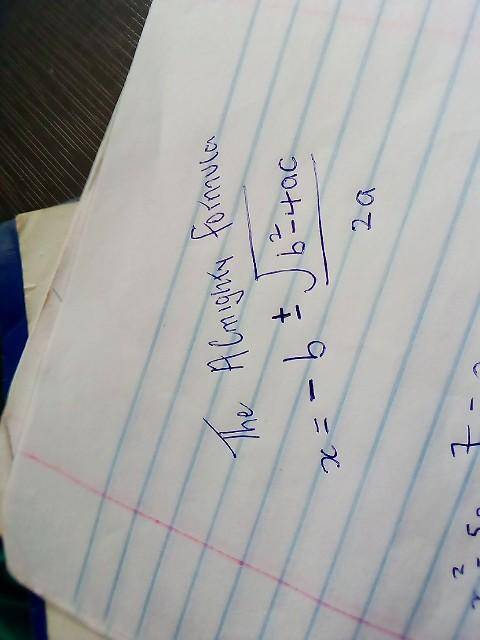 The Almighty formula
x = - b ± √b²-4ac
2a